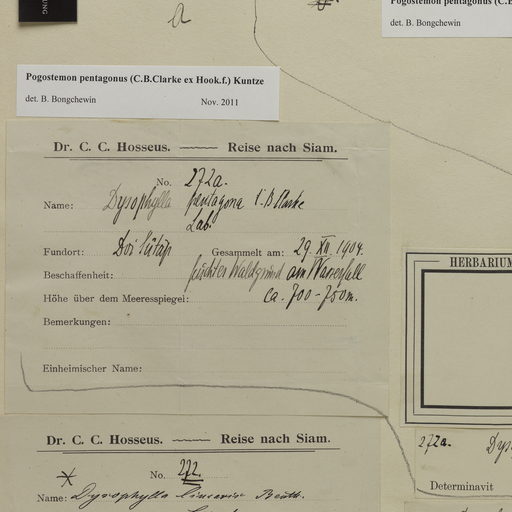 UNG
a
Pogostemon pentagonus (C.B.
det. B. Bongchewin
Pogostemon pentagonus (C.B.Clarke ex Hook.f.) Kuntze
det. B. Bongchewin Nov. 2011
Dr. C. C. Hosseus. Reise nach Siam.
No. 272a.
Name: Dysophylla pentagona C.B. Clarke
Lab.
Fundort: Doi Sutäp Gesammelt am: 29. XII. 1904.
Beschaffenheit: feuchter Waldgrund am Wasserfall
Höhe über dem Meeresspiegel: ca. 700-750m.
Bemerkungen:
Einheimischer Name:
HERBARIUM
272a. Dys
Determinavit
Dr. C. C. Hosseus. Reise nach Siam.
No. 272.
Name: Dysophylla linearis Benth.